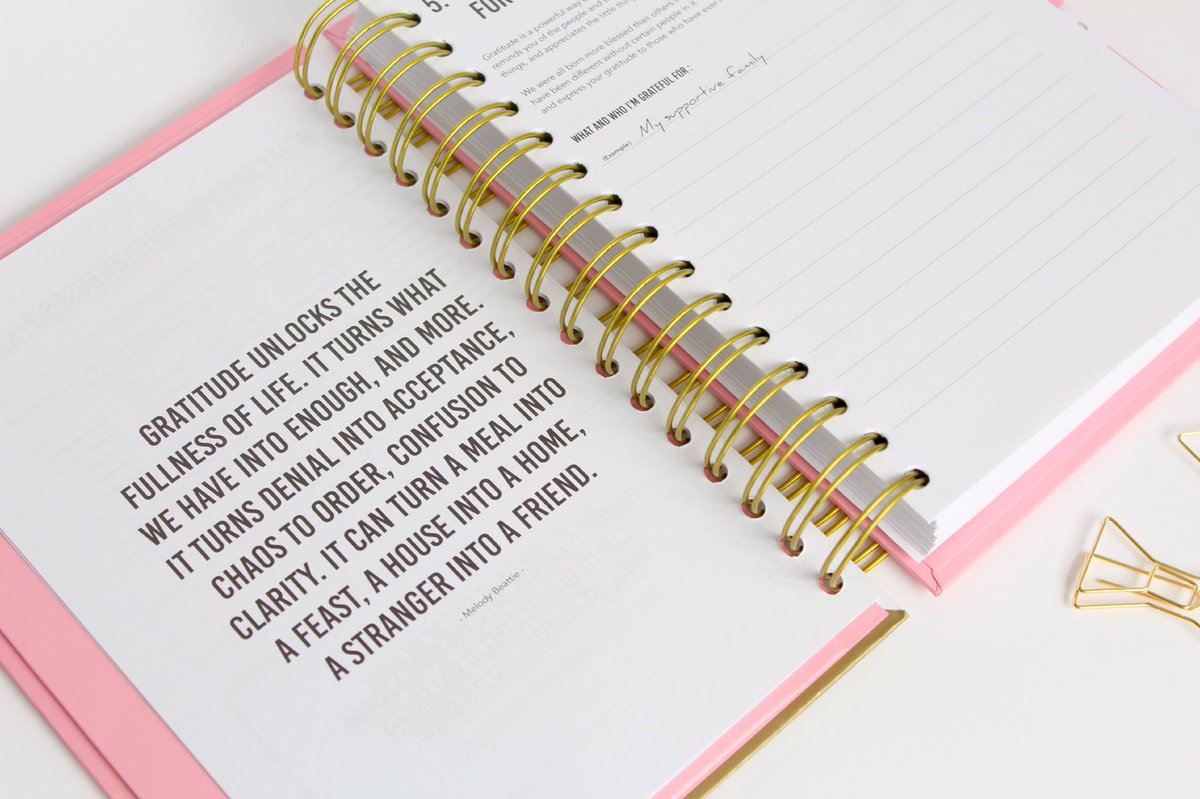 GRATITUDE UNLOCKS THE
FULLNESS OF LIFE. IT TURNS WHAT
WE HAVE INTO ENOUGH, AND MORE.
IT TURNS DENIAL INTO ACCEPTANCE,
CHAOS TO ORDER, CONFUSION TO
CLARITY. IT CAN TURN A MEAL INTO
A FEAST, A HOUSE INTO A HOME,
A STRANGER INTO A FRIEND.
- Melody Beattie -
5.
Gratitude is a powerful way
reminds you of the people and
things, and appreciates the little thin
We were all born more blessed than others
have been different without certain people in it.
and express your gratitude to those who have ever
WHAT AND WHO I'M GRATEFUL FOR :
(Example) My supportive family